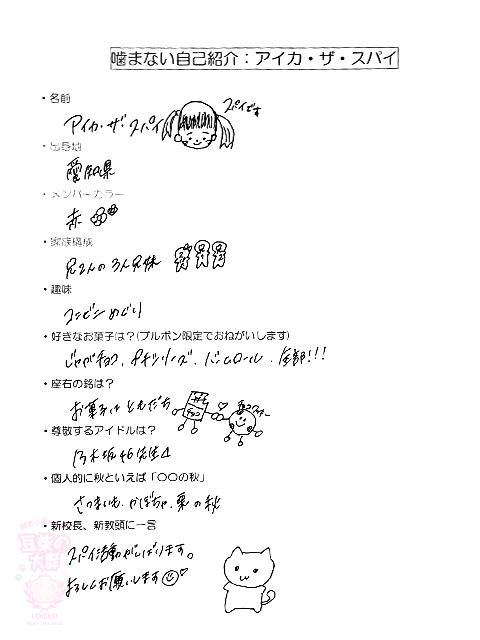 噛まない自己紹介：アイカ・ザ・スパイ
・名前
アイカ・ザ・スパイ
スパイです
・出身地
愛知県
・メンバーカラー
赤
・家族構成
兄2人の3人兄妹
・趣味
コンビニめぐり
・好きなお菓子は？(ブルボン限定でおねがいします)
じゃがチョコ、プチシリーズ、バームロール、全部!!!
・座右の銘は？
お菓子は ともだち
・尊敬するアイドルは？
乃木坂46先生
・個人的に秋といえば「〇〇の秋」
さつまいも、かぼちゃ、栗の秋
・新校長、新教頭に一言
スパイ活動がんばります。
よろしくお願いします
豆柴の
大群